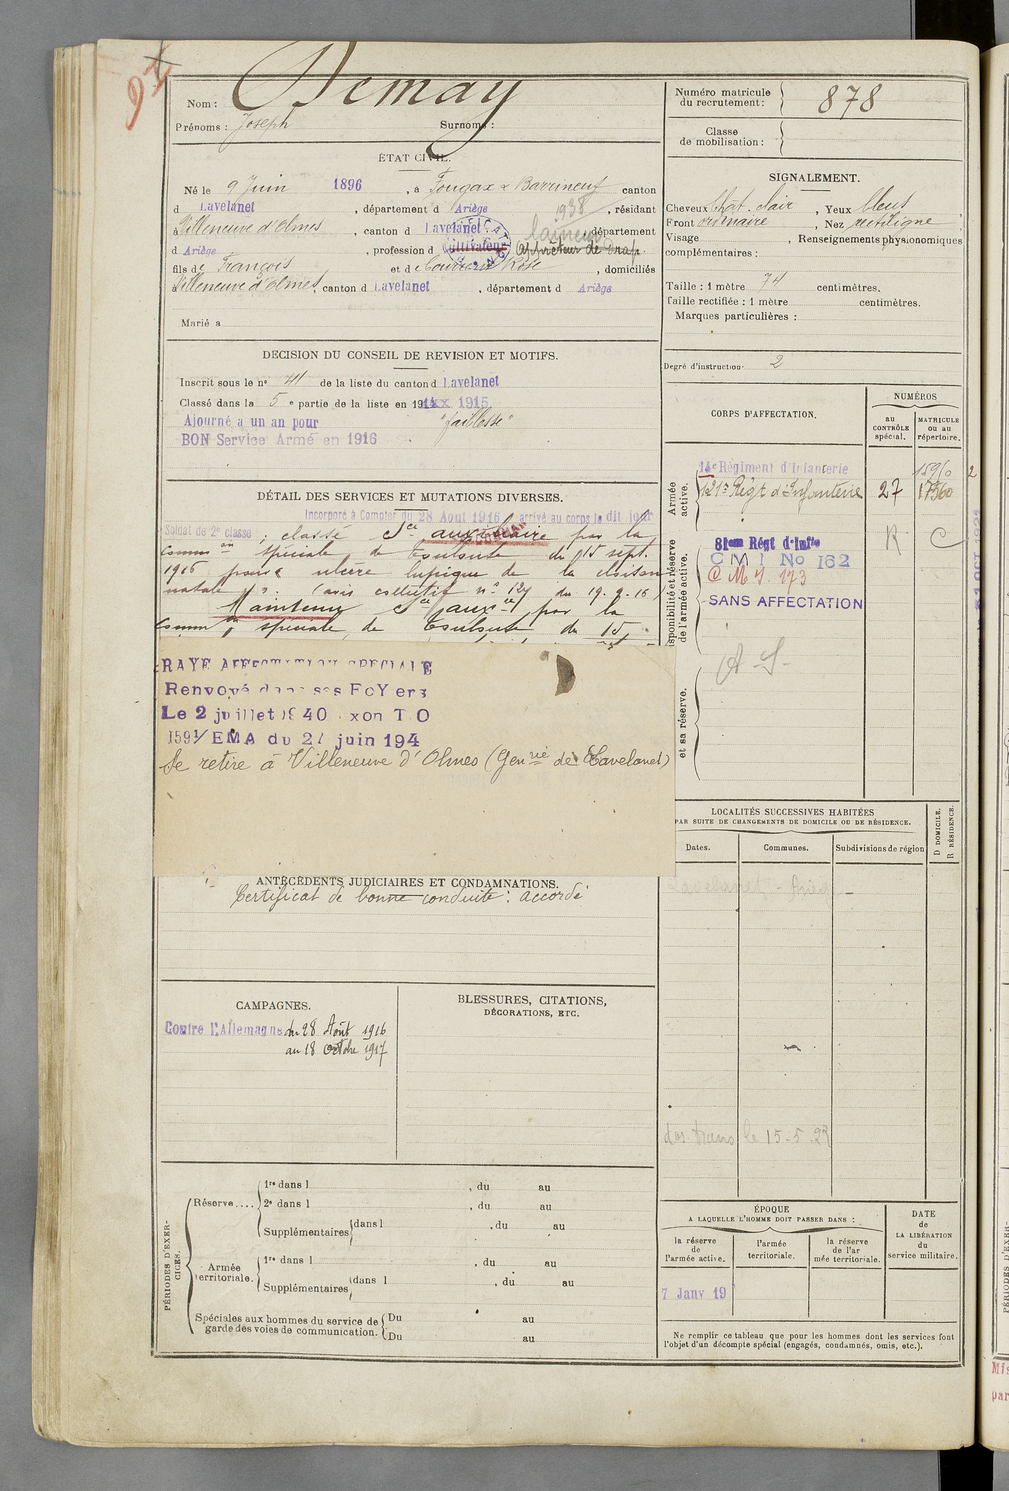 91
Nom : Demay
Prénoms : Joseph Surnoms :
ÉTAT CIVIL.
Né le 9 Juin 1896, à Fougax & Barrineuf canton
d Lavelanet, département d Ariège, résidant
1938
à Villeneuve d'Olmes, canton d Lavelanet, département
d Ariège, profession d Cultivateur Apprêteur de drap.
fils de François et de Rose, domiciliés
à Villeneuve d'Olmes, canton d Lavelanet, département d Ariège
Marié a
DECISION DU CONSEIL DE REVISION ET MOTIFS.
Inscrit sous le nº 41 de la liste du canton d Lavelanet
Classé dans la 5e partie de la liste en 1915
Ajourné a un an pour "faiblesse"
BON Service Armé en 1916
DÉTAIL DES SERVICES ET MUTATIONS DIVERSES.
Incorporé à Compter du 28 Aout 1916 arrivé au corps le dit jour
Soldat de 2e classe ; classé Sce auxiliaire par la
Common spéciale de Toulouse du 15 sept.
1916 pour ulcère lupique de la cloison
nasale (avis collectif nº 127 du 19.9.16)
Maintenu Sce auxre par la
Common spéciale de Toulouse du 15
RAYE AFFECTATION SPECIALE
Renvoyé dans ses FoYers
Le 2 juillet 1940 xon T O
1591/EMA du 21 juin 194
Se retire à Villeneuve d'Olmes (Genrie de Lavelanet)
ANTÉCÉDENTS JUDICIAIRES ET CONDAMNATIONS.
Certificat de bonne conduite : accordé
CAMPAGNES.
Contre l'Allemagne du 28 Août 1916
au 18 octobre 1917
BLESSURES, CITATIONS,
DÉCORATIONS, ETC.
PÉRIODES D'EXERCICES.
Réserve....
1re dans l , du au
2e dans l , du au
Supplémentaires dans l , du au
Armée territoriale.
1re dans l , du au
Supplémentaires dans l , du au
Spéciales aux hommes du service de garde des voies de communication.
Du au
Du au
Numéro matricule du recrutement : 878
Classe de mobilisation :
SIGNALEMENT.
Cheveux Chat. clair, Yeux bleus
Front ordinaire, Nez rectiligne
Visage , Renseignements physionomiques
complémentaires :
Taille : 1 mètre 74 centimètres.
Taille rectifiée : 1 mètre centimètres.
Marques particulières :
Degré d'instruction : 2
CORPS D'AFFECTATION.
NUMÉROS
AU CONTRÔLE spécial.
MATRICULE ou au répertoire.
Armée active.
14e Régiment d'Infanterie 15960
121e Régt d'Infanterie 27 17560
2
Disponibilité et réserve de l'armée active.
81eme Régt d'Infie R C
C M I No 162
C M I. 173
SANS AFFECTATION
et sa réserve.
A S
LOCALITÉS SUCCESSIVES HABITÉES
PAR SUITE DE CHANGEMENTS DE DOMICILE OU DE RÉSIDENCE.
Dates. Communes. Subdivisions de région
D DOMICILE.
R RÉSIDENCE.
Lavelanet - Ariège
dos. trans le 15-5.29
ÉPOQUE
A LAQUELLE L'HOMME DOIT PASSER DANS :
la réserve de l'armée active.
l'armée territoriale.
la réserve de l'ar mée territoriale.
DATE de LA LIBÉRATION du service militaire.
7 Janv 19
Ne remplir ce tableau que pour les hommes dont les services font
l'objet d'un décompte spécial (engagés, condamnés, omis, etc.).